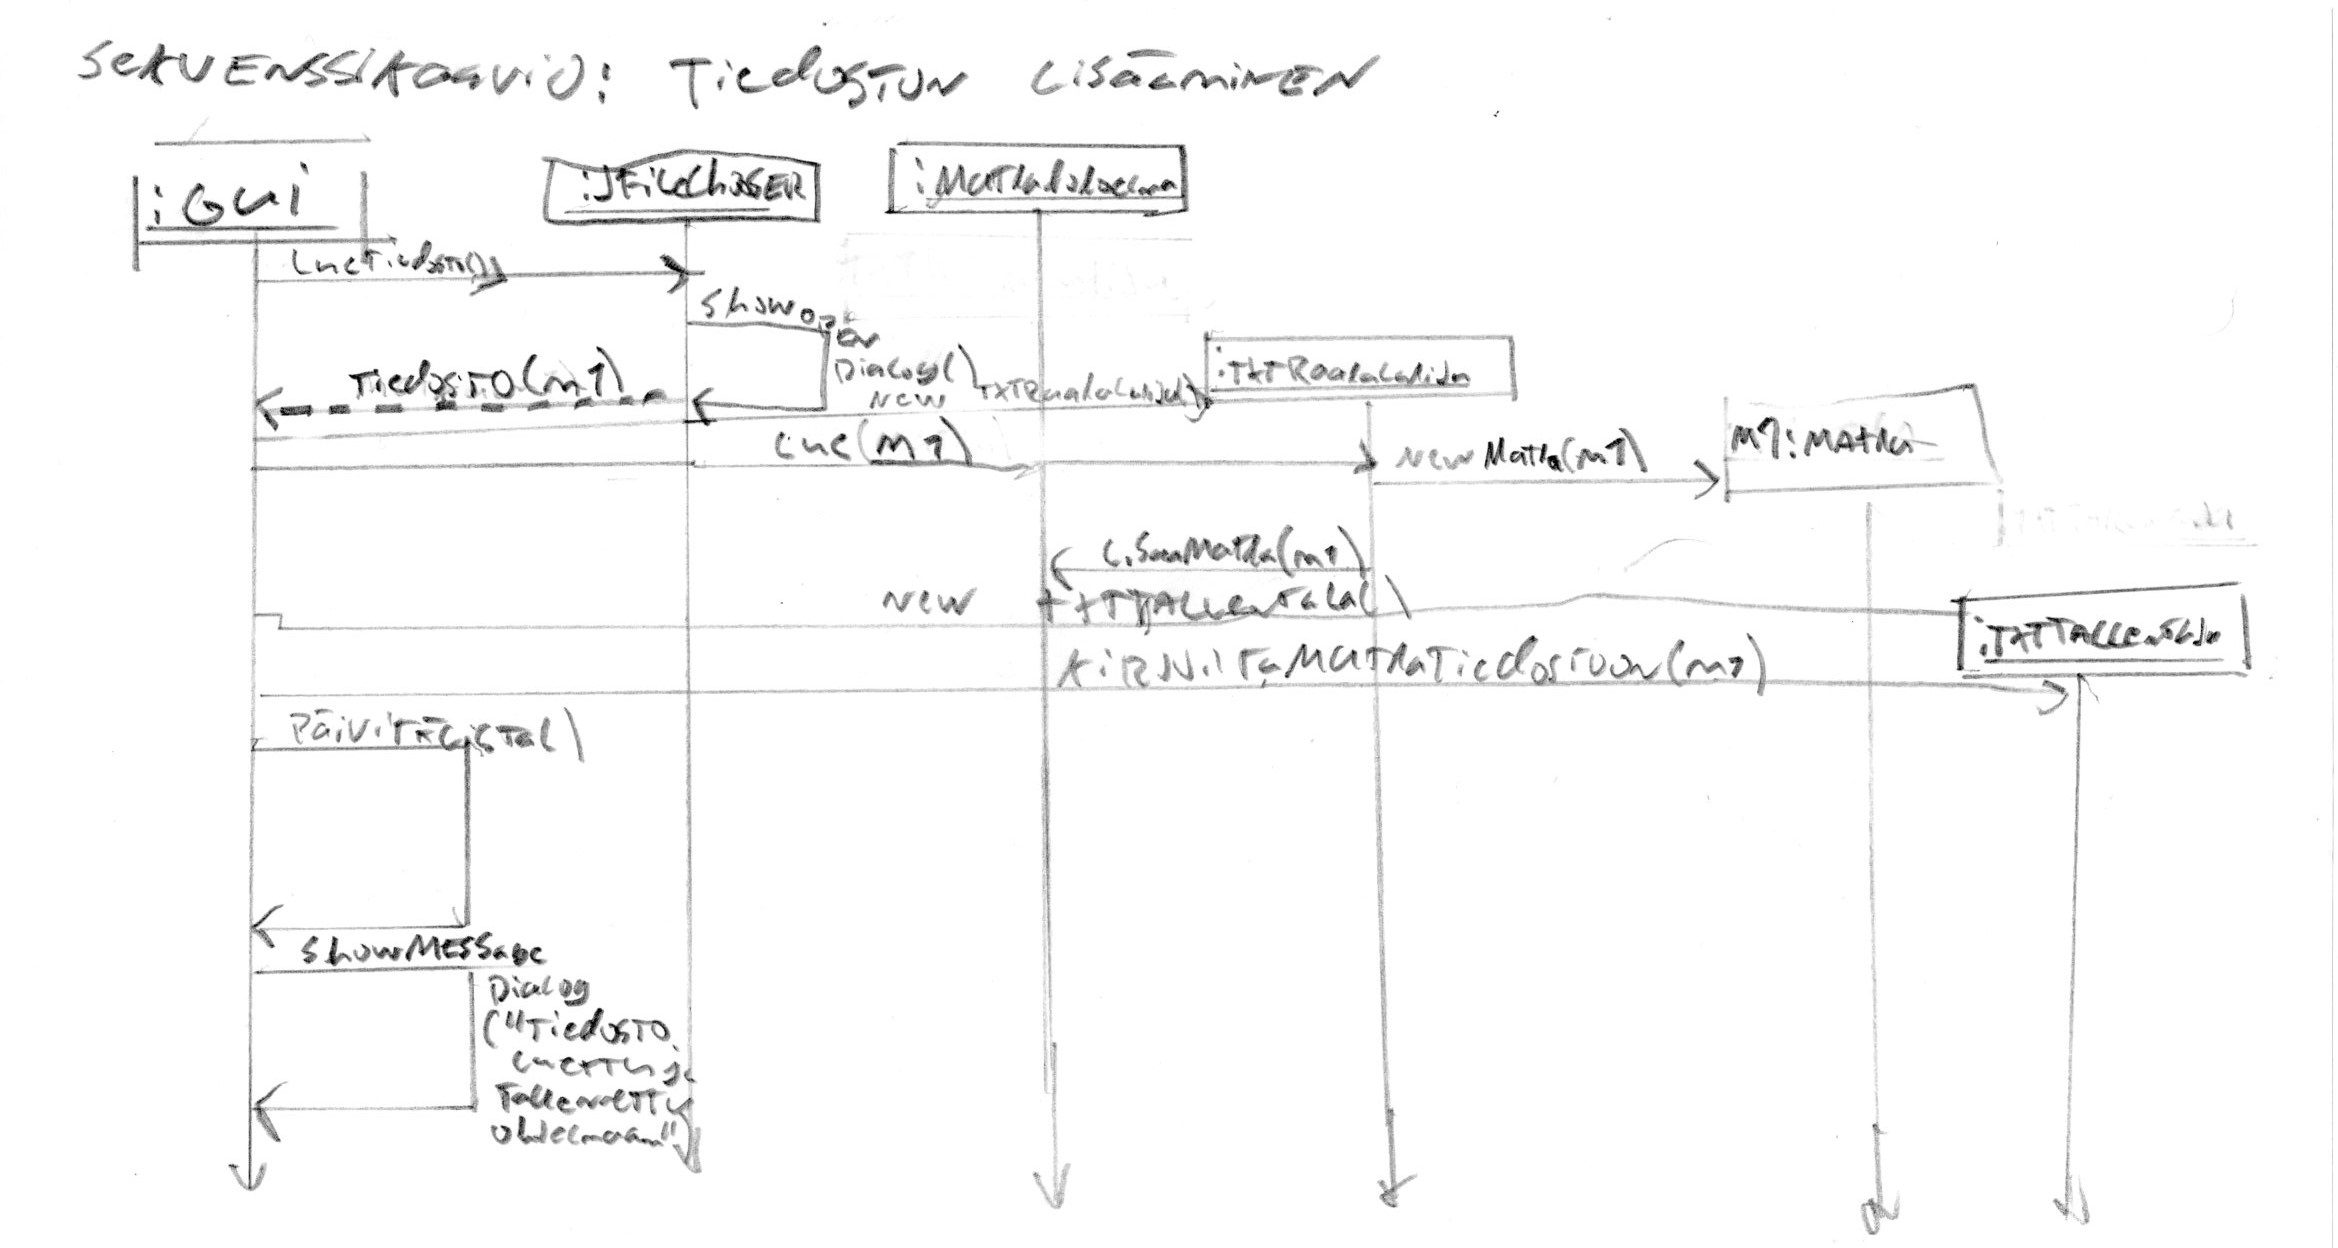 SEKVENSSIKAAVIO: TIEDOSTON LISÄÄMINEN
:GUI
:JFileChooser
:Matkakokoelma
LueTiedosto()
ShowOpen
Dialog()
TIEDOSTO(m1)
New TXTRaakaLukija()
:TXTRaakaLukija
Lue(m1)
New Matka(m1)
m1:Matka
LisaaMatka(m1)
New TXTTallentaja()
:TXTTallentaja
KirjoitaMatkaTiedostoon(m1)
PäivitäLista()
ShowMessage
Dialog
("Tiedosto
luettu ja
tallennettu
ohjelmaan")